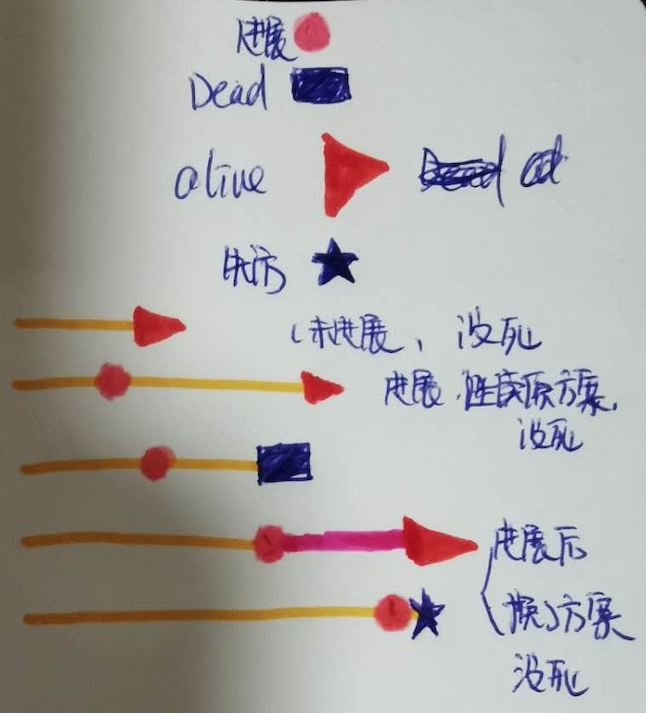 进展
Dead
alive
失访
未进展、没死
进展,继续原方案,
没死
进展后
换了方案
没死